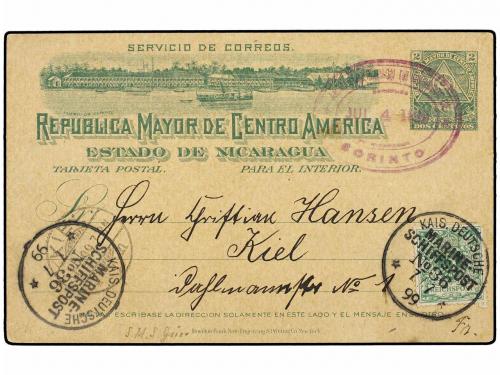 SERVICIO DE CORREOS.
2 2
DOS CENTAVOS
REPUBLICA MAYOR DE CENTRO AMERICA
ESTADO DE NICARAGUA
TARJETA POSTAL. PARA EL INTERIOR.
JUL 4
CORINTO
Herrn Christian Hansen
Kiel
Dahlmannstr. No 1
KAIS. DEUTSCHE
MARINE-
SCHIFFSPOST
No 36
7/7
99
KAIS. DEUTSCHE
MARINE-
SCHIFFSPOST
No 36
7 7
99
ESCRIBASE LA DIRECCION SOLAMENTE EN ESTE LADO Y EL MENSAJE EN EL OTRO
S.M.S. Geier